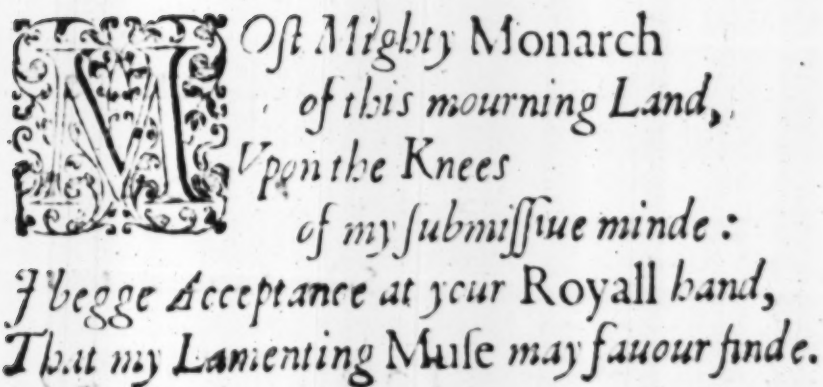 MOſt Mighty Monarch
of this mourning Land,
Vpon the Knees
of my ſubmiſſiue minde:
I begge Acceptance at your Royall hand,
That my Lamenting Muſe may fauour finde.